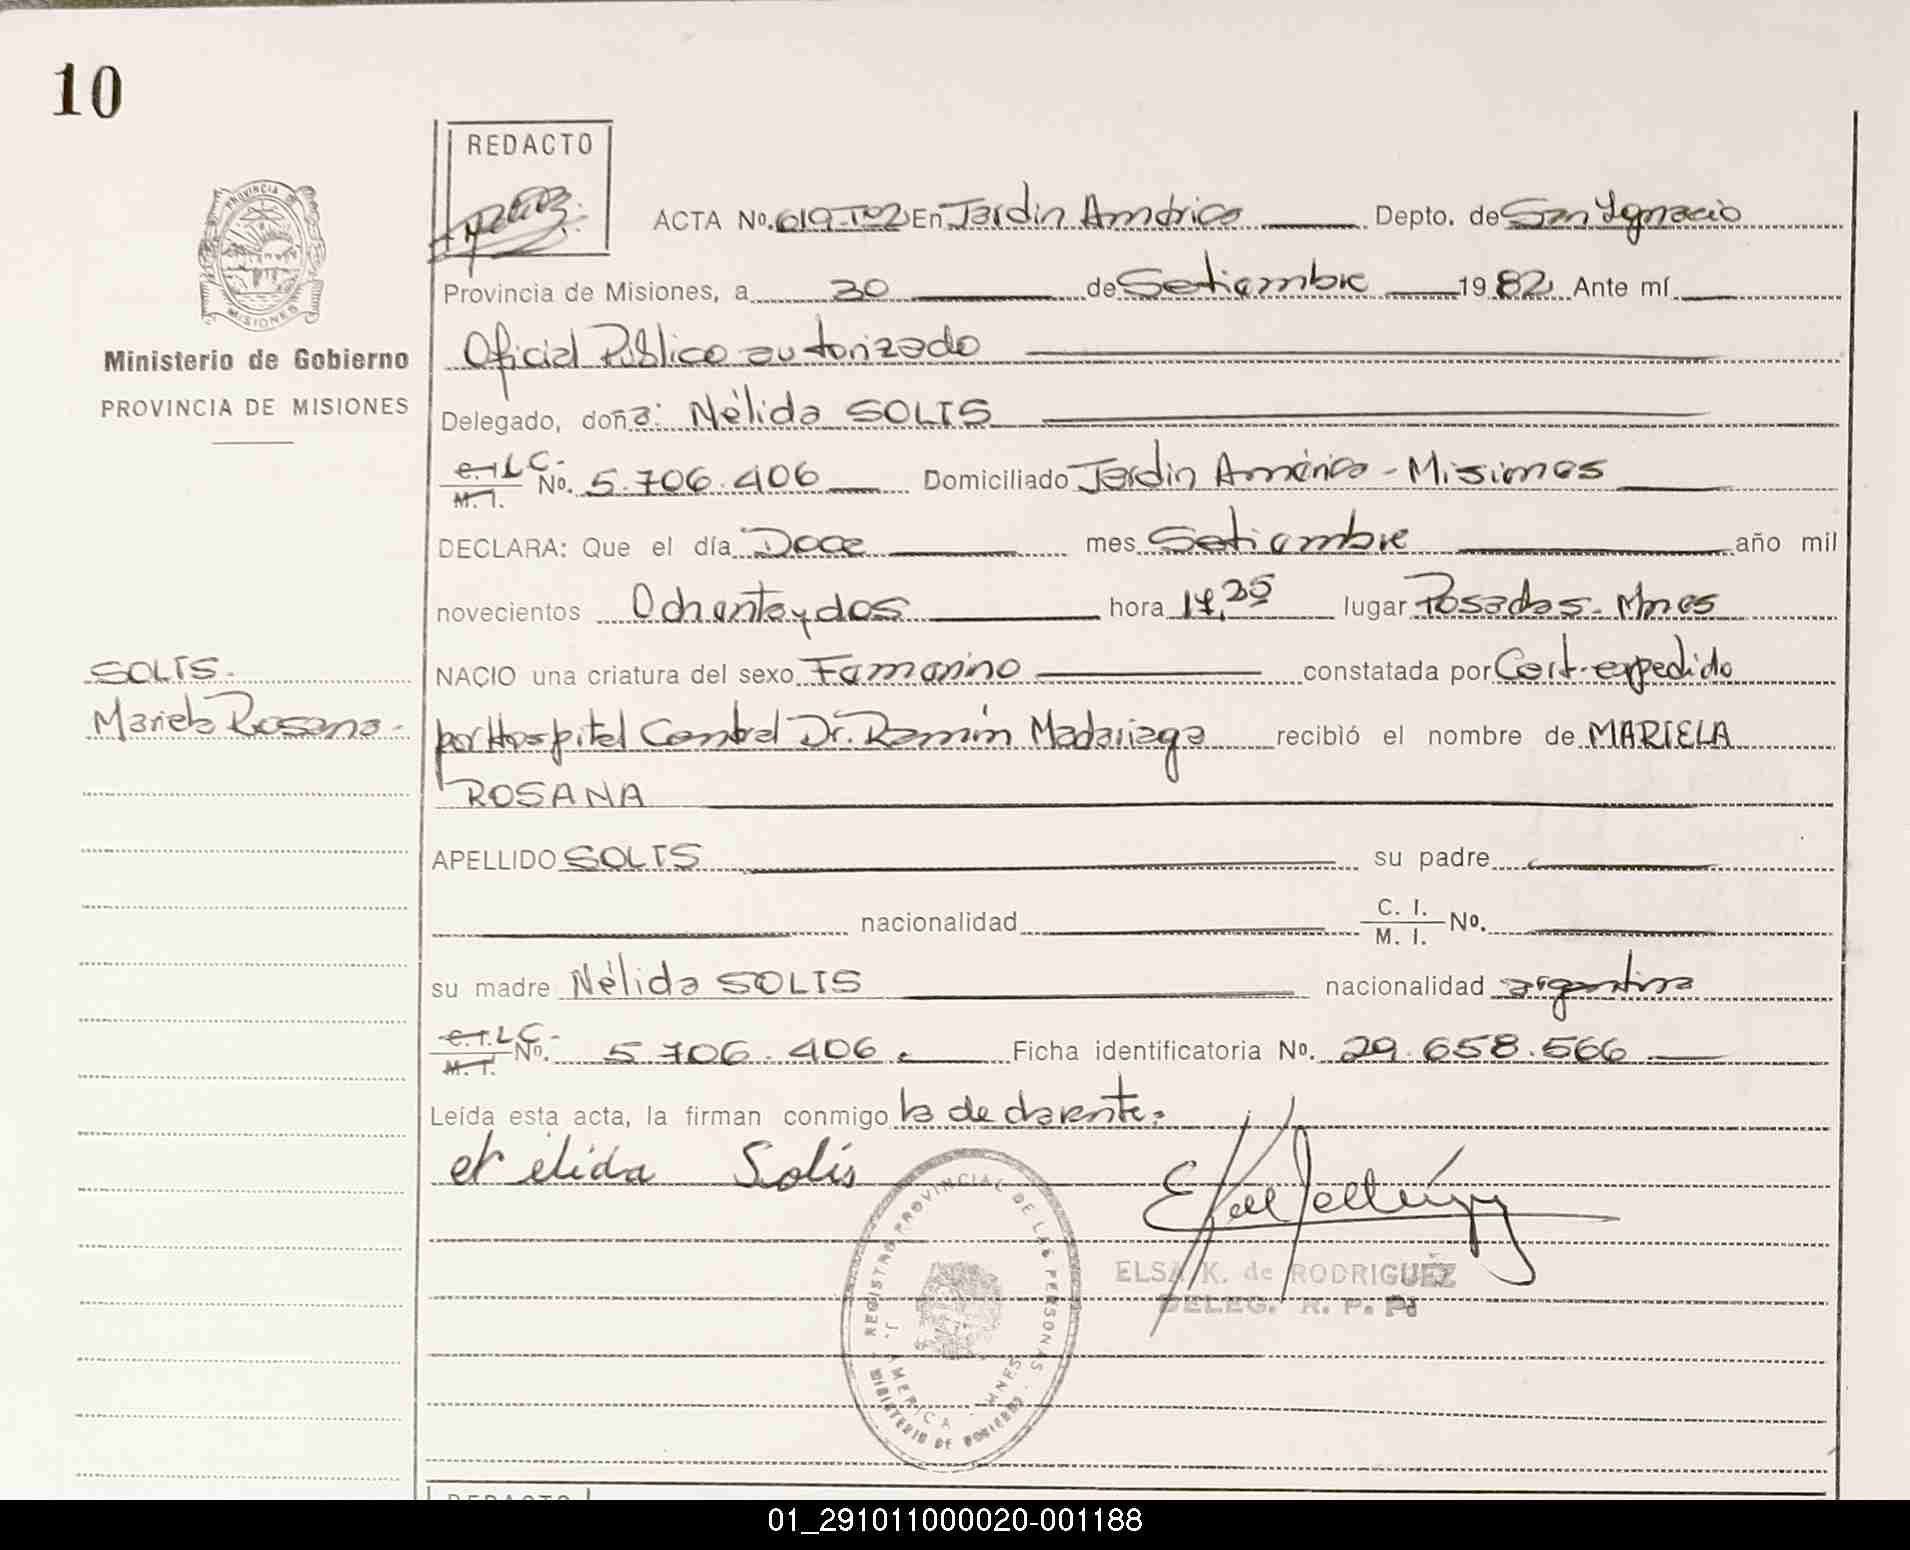 10
REDACTO
PROVINCIA DE
MISIONES
Ministerio de Gobierno
PROVINCIA DE MISIONES
ACTA No. 619-T02 En Jardin América Depto. de San Ignacio
Provincia de Misiones, a 30 de Setiembre 1982 Ante mí
Oficial Público autorizado
Delegado, doña: Nélida SOLIS
C.I. L.C.- M.I. No. 5.706.406 Domiciliado Jardin América - Misiones
DECLARA: Que el día Doce mes Setiembre año mil
novecientos Ochenta y dos hora lugar Posadas - Mnes
SOLIS.
Mariela Rosana.-
NACIO una criatura del sexo Femenino constatada por Cert. expedido
por Hospital Central Dr. Ramón Madariaga recibió el nombre de MARIELA
ROSANA
APELLIDO SOLIS su padre
nacionalidad C. I. M. I. No.
su madre Nélida SOLIS nacionalidad argentina
C.I. L.C.- M.I. No. 5.706.406. Ficha identificatoria No. 29.658.566
Leída esta acta, la firman conmigo la declarante:
Nélida Solis
REGISTRO PROVINCIAL DE LAS PERSONAS
J. AMERICA - MNES
MINISTERIO DE GOBIERNO
ELSA K. de RODRIGUEZ
DELEG. R. P. P.
REDACTO
01_291011000020-001188